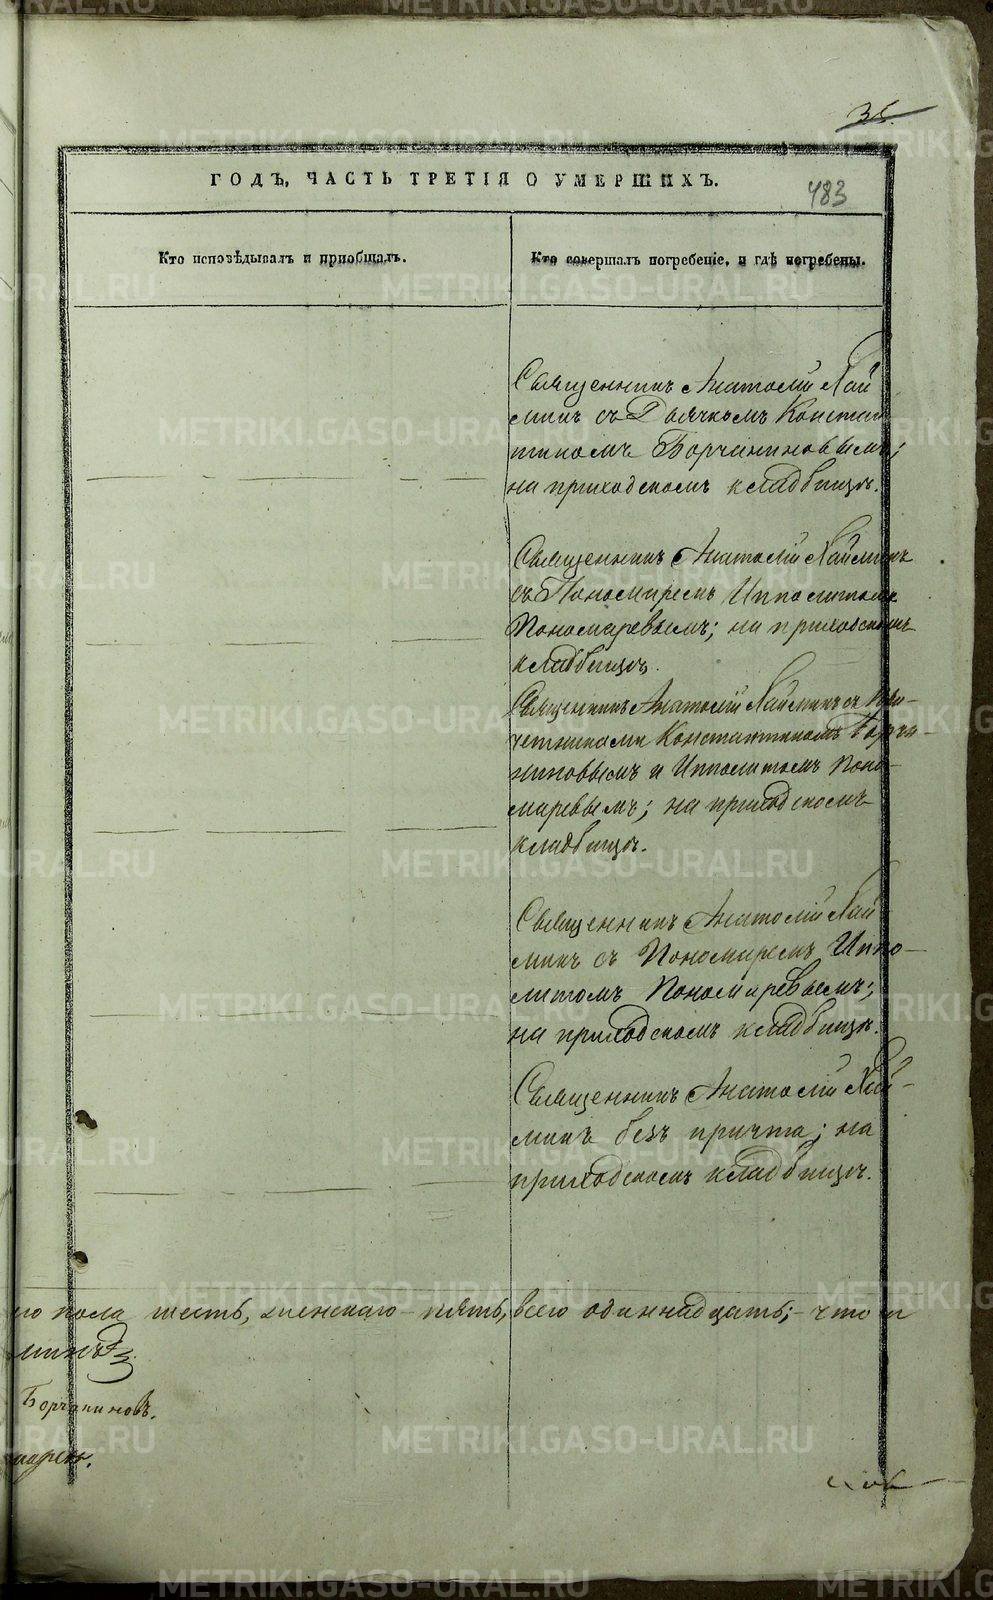 35.
ГОДЪ, ЧАСТЬ ТРЕТІЯ О УМЕРШИХЪ.
483
Кто исповѣдывалъ и пріобщалъ.
Кто совершалъ погребеніе, и гдѣ погребены.
Священникъ Анатолій Хай
минъ съ Дьячкомъ Констан
тиномъ Борчаниновымъ;
на приходскомъ кладбищѣ.
Священникъ Анатолій Хайминъ
съ Пономаремъ Ипполитомъ
Пономаревымъ; на приходскомъ
кладбищѣ.
Священникъ Анатолій Хайминъ съ При-
четниками Константиномъ Борча-
ниновымъ и Ипполитомъ Поно-
маревымъ; на приходскомъ
кладбищѣ.
Священникъ Анатолій Хай
минъ съ Пономаремъ Иппо-
литомъ Пономаревымъ;
на приходскомъ кладбищѣ.
Священникъ Анатолій Хай-
минъ безъ причта; на
приходскомъ кладбищѣ.
го пола шесть, женскаго пять, всего одиннадцать; что и
минъ
Борчаниновъ.
маревъ.
METRIKI.GASO-URAL.RU